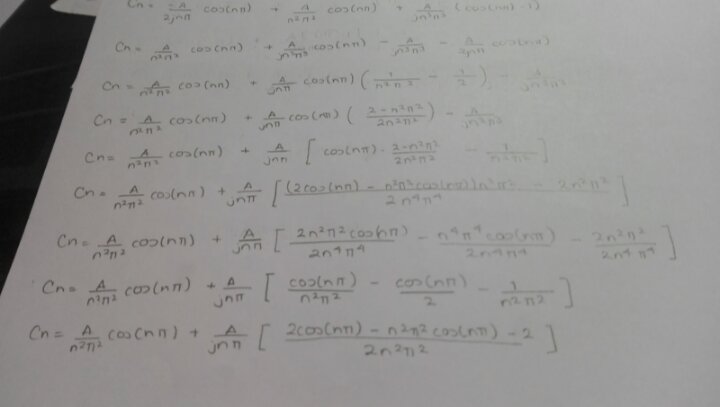 Cn = -A/2jnπ cos(nπ) + A/n²π² cos(nπ) + A/jn³π³ (cos(nπ)-1)
Cn = A/n²π² cos(nπ) + A/jn³π³ cos(nπ) - A/jn³π³ - A/2jnπ cos(nπ)
Cn = A/n²π² cos(nπ) + A/jnπ cos(nπ) (1/n²π² - 1/2) - A/jn³π³
Cn = A/n²π² cos(nπ) + A/jnπ cos(nπ) (2-n²π²/2n²π²) - A/jn³π³
Cn = A/n²π² cos(nπ) + A/jnπ [cos(nπ) · 2-n²π²/2n²π² - 1/n²π²]
Cn = A/n²π² cos(nπ) + A/jnπ [(2cos(nπ) - n²π²cos(nπ))n²π² - 2n²π²/2n⁴π⁴]
Cn = A/n²π² cos(nπ) + A/jnπ [2n²π²cos(nπ)/2n⁴π⁴ - n⁴π⁴cos(nπ)/2n⁴π⁴ - 2n²π²/2n⁴π⁴]
Cn = A/n²π² cos(nπ) + A/jnπ [cos(nπ)/n²π² - cos(nπ)/2 - 1/n²π²]
Cn = A/n²π² cos(nπ) + A/jnπ [2cos(nπ) - n²π²cos(nπ) - 2/2n²π²]